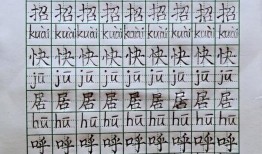 招 招 招 招 招 招 招 招
kuài kuài kuài kuài kuài kuài kuài kuài
快 快 快 快 快 快 快 快
jū jū jū jū jū jū jū jū
居 居 居 居 居 居 居 居
hū hū hū hū hū hū hū hū
呼 呼 呼 呼 呼 呼 呼 呼